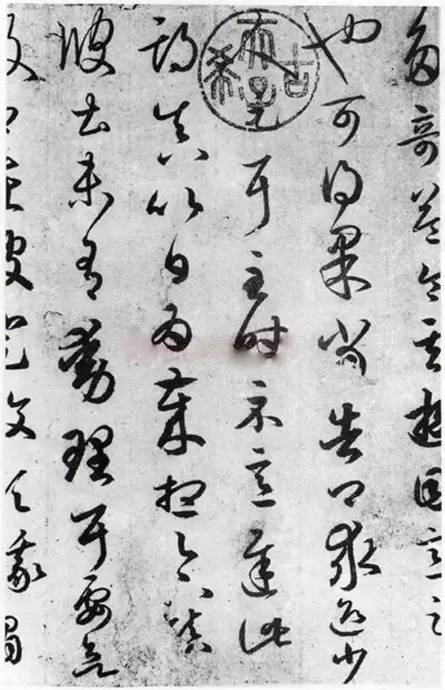 多奇益令其遊目意足
也可得果當告卿求迎少
人足耳至時示意遲此
期真以日為歲想足下鎮
彼土未有動理耳要欲
及卿在彼登汶領峨眉
古希天子